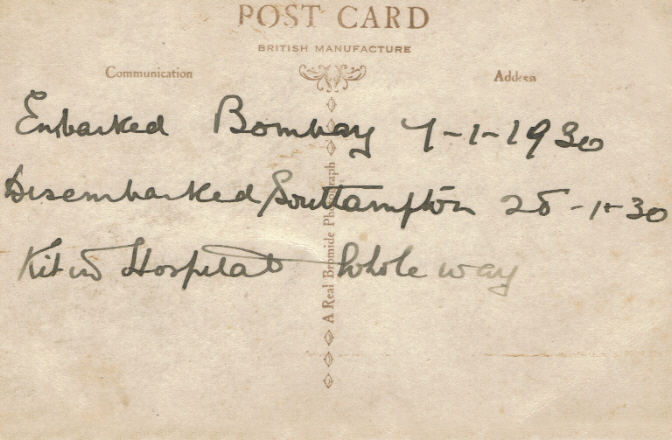 POST CARD
BRITISH MANUFACTURE
Communication
Address
Embarked Bombay 7-1-1930
Disembarked Southampton 25-1-30
Kit in Hospital whole way
A Real Bromide Photograph